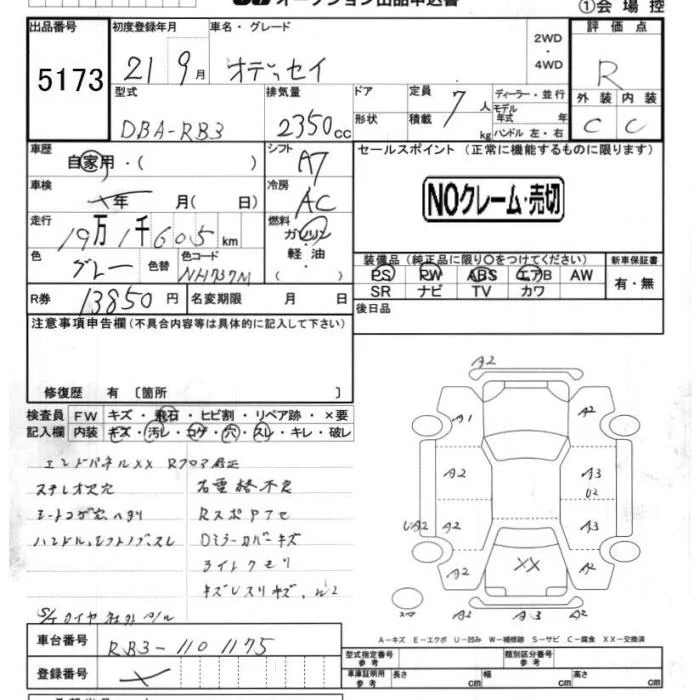 オークション出品申込書
①会 場 控
出品番号
5173
初度登録年月
21 9月
車名・グレード
オデッセイ
2WD
・
4WD
評 価 点
R
外 装 内 装
C C
型式
DBA-RB3
排気量
2350cc
ドア
形状
定員 7人
積載 kg
ディーラー・並行
モデル
年式 年
ハンドル 左・右
車歴
自家用・( )
シフト
A7
セールスポイント (正常に機能するものに限ります)
NOクレーム・売切
車検
年 月( 日)
冷房
AC
走行
19万1千605km
燃料
ガソリン
軽・油
( )
色
グレー
色替
色コード
NH737M
装備品(純正品に限り○をつけてください)
PS PW ABS エアB AW
SR ナビ TV カワ
新車保証書
有・無
R券 13850円
名変期限 月 日
後日品
注意事項申告欄(不具合内容等は具体的に記入して下さい)
修復歴 有 〔箇所 〕
検査員
記入欄
FW キズ・飛石・ヒビ割・リペア跡・×要
内装 キズ・汚レ・コゲ・穴・スレ・キレ・破レ
エンドパネルXX Rフロア修正
ステレオ欠穴
シートコゲ穴ヘタリ
ハンドル、シフトノブスレ
Rスポアクセ
Dミラーカバーキズ
ライトクモリ
S/Tタイヤ
A2
A1
A2
A2
A3
U2
UA2
A2
A3
A2
XX
A2
スペ
A2
A3
A2
A－キズ E－エクボ U－凹み W－補修跡 S－サビ C－腐食 XX－交換済
車台番号
RB3-1101175
登録番号
型式指定番号
参 考
類別区分番号
参 考
車庫証明用
参 考
長さ cm
幅 cm
高さ cm